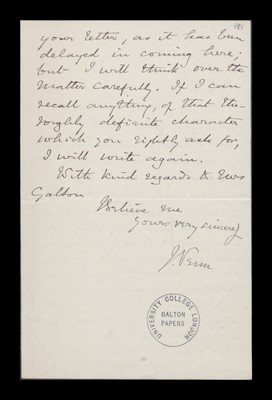 181
your letter, as it has been
delayed in coming here;
but I will think over the
matter carefully. If I can
recall anything, of that tho-
roughly definite character
which you rightly ask for,
I will write again.
With kind regards to Mrs
Galton
Believe me
Yours very sincerely
J. Venn
UNIVERSITY COLLEGE LONDON
GALTON
PAPERS